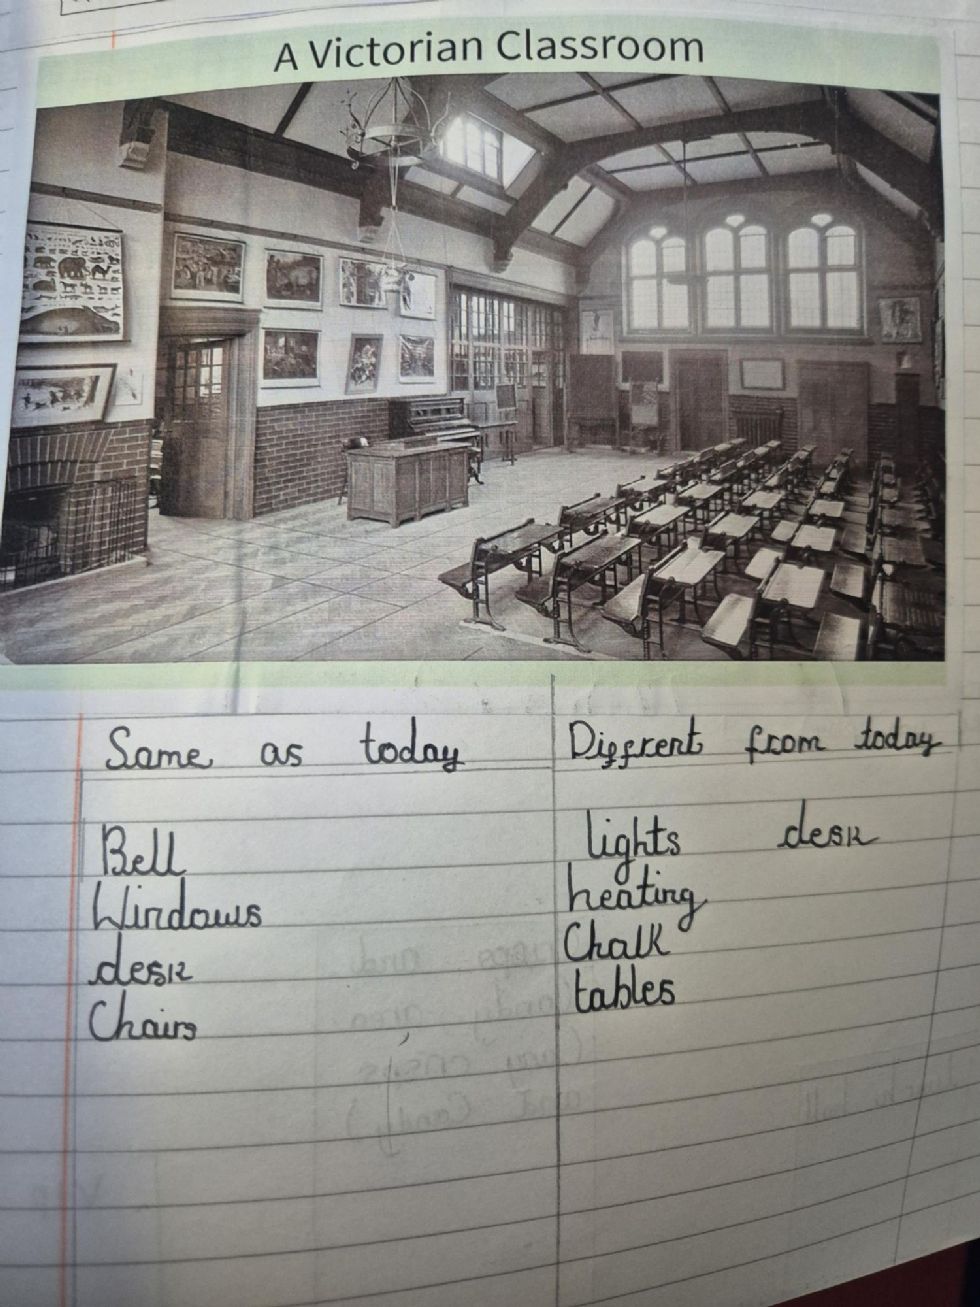 A Victorian Classroom
Same as today
Diffrent from today
Bell
Windows
desk
Chairs
lights desk
heating
Chalk
tables